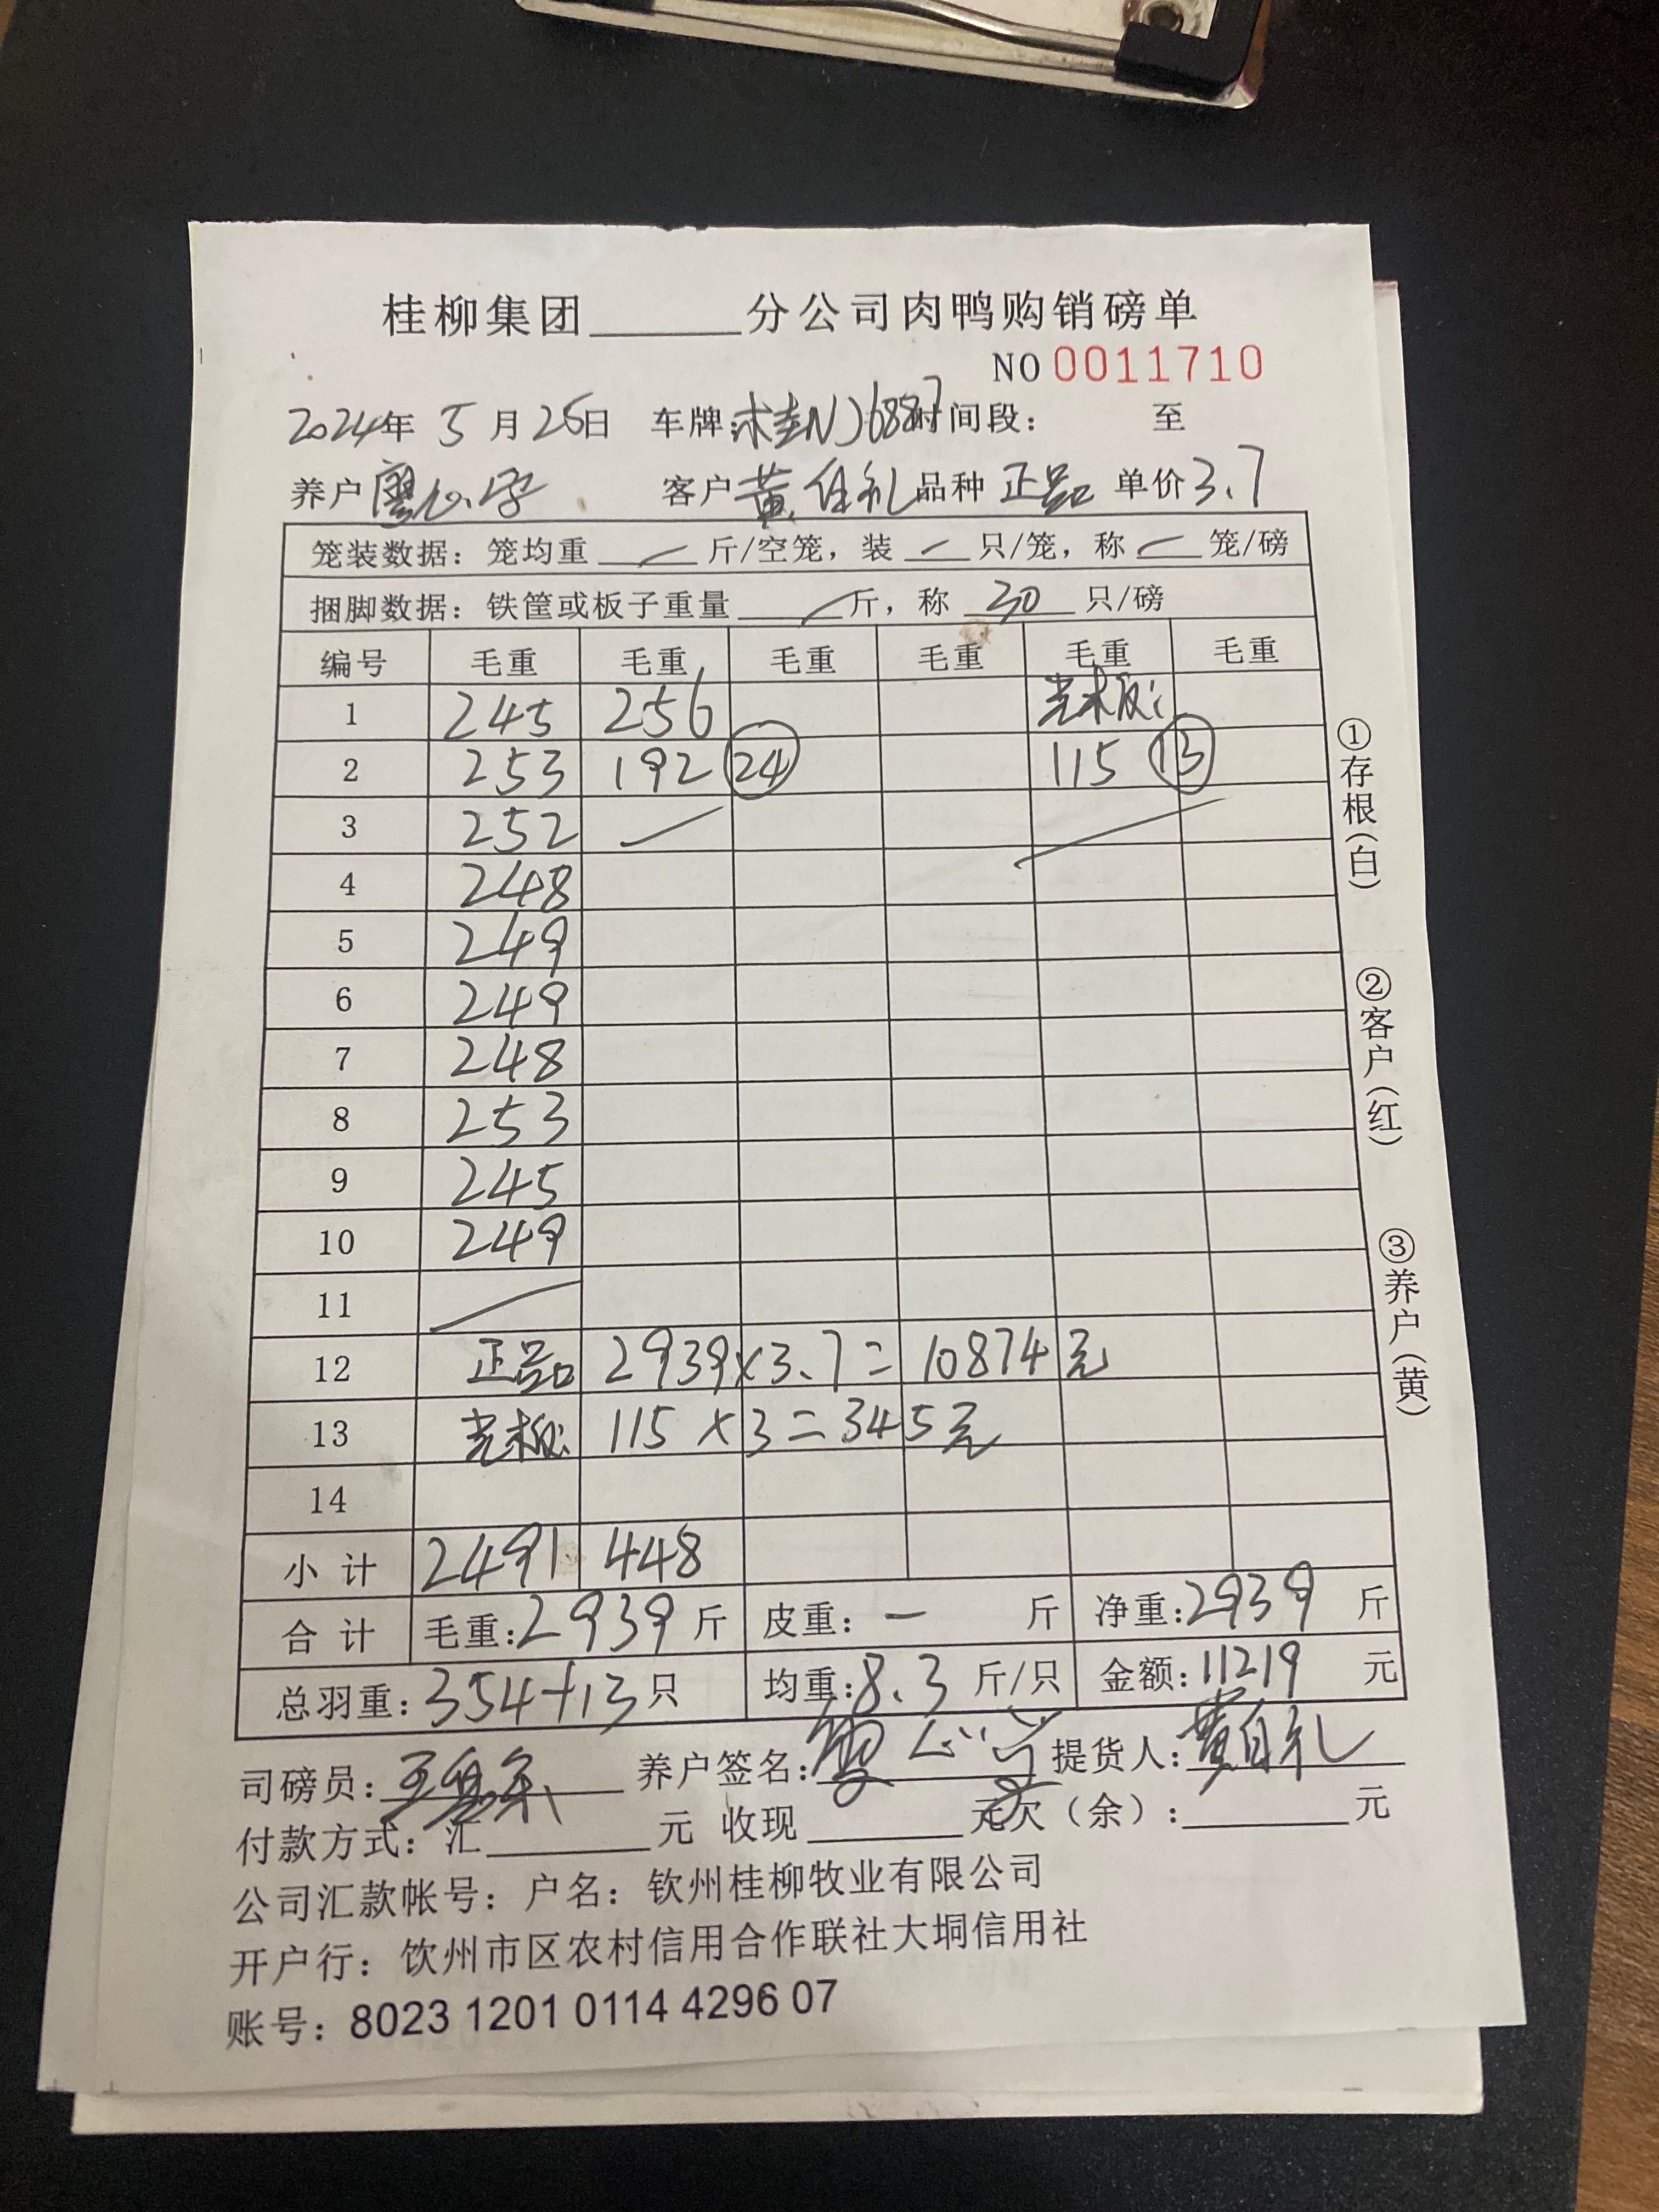 桂柳集团______分公司肉鸭购销磅单
NO 0011710
2024年 5月26日 车牌: 时间段： 至
养户 客户 黄自礼 品种 正品 单价 3.7
笼装数据：笼均重 — 斤/空笼，装 — 只/笼，称 — 笼/磅
捆脚数据：铁筐或板子重量 — 斤，称 30 只/磅
编号 毛重 毛重 毛重 毛重 毛重 毛重
1 245 256
2 253 192 24 115 13
3 252
4 248
5 249
6 249
7 248
8 253
9 245
10 249
11
12 正品 2939×3.7=10874元
13 115×3=345元
14
小计 2491 448
合计 毛重:2939斤 皮重: — 斤 净重:2939 斤
总羽重:354+13只 均重:8.3 斤/只 金额:11219 元
司磅员: 养户签名: 提货人:黄自礼
付款方式：汇______元 收现______元欠（余）:______元
公司汇款帐号：户名：钦州桂柳牧业有限公司
开户行：钦州市区农村信用合作联社大垌信用社
账号：8023 1201 0114 4296 07
①存根(白)
②客户(红)
③养户(黄)